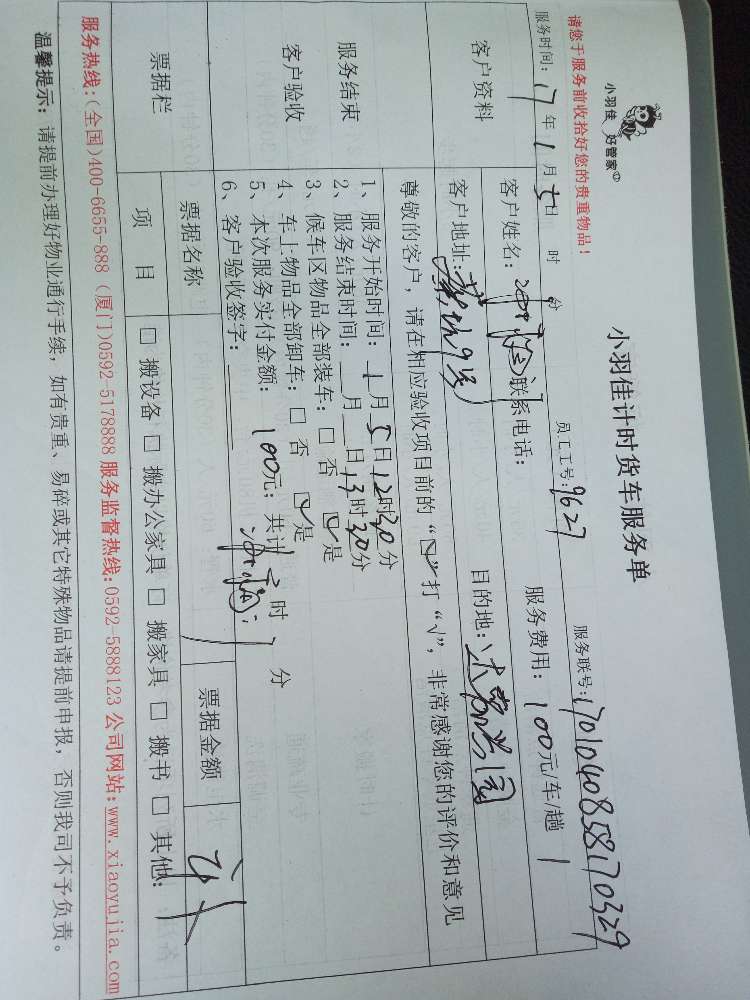 小羽佳 好管家
小羽佳计时货车服务单
请您于服务前收拾好您的贵重物品!
员工工号:9627
服务联号:1701040858170329
服务时间:17年1月5日 时 分
客户资料
客户姓名: 联系电话:
服务费用:100元/车/趟 1
客户地址:
目的地:
尊敬的客户,请在相应验收项目前的“☑”打“√”,非常感谢您的评价和意见
服务结束
客户验收
1、服务开始时间:1月5日12时30分
2、服务结束时间: 月 日13时30分
3、候车区物品全部装车:□否 ☑是
4、车上物品全部卸车:□否 ☑是
5、本次服务实付金额:100元;共计 时 分
6、客户验收签字:
票据栏
票据名称
票据金额
项 目
□ 搬设备 □ 搬办公家具 □ 搬家具 □ 搬书 □ 其他:
服务热线:(全国)400-6655-888 (厦门)0592-5178888 服务监督热线:0592-5888123 公司网站:www.xiaoyujia.com
温馨提示:请提前办理好物业通行手续,如有贵重、易碎或其它特殊物品请提前申报,否则我司不予负责。